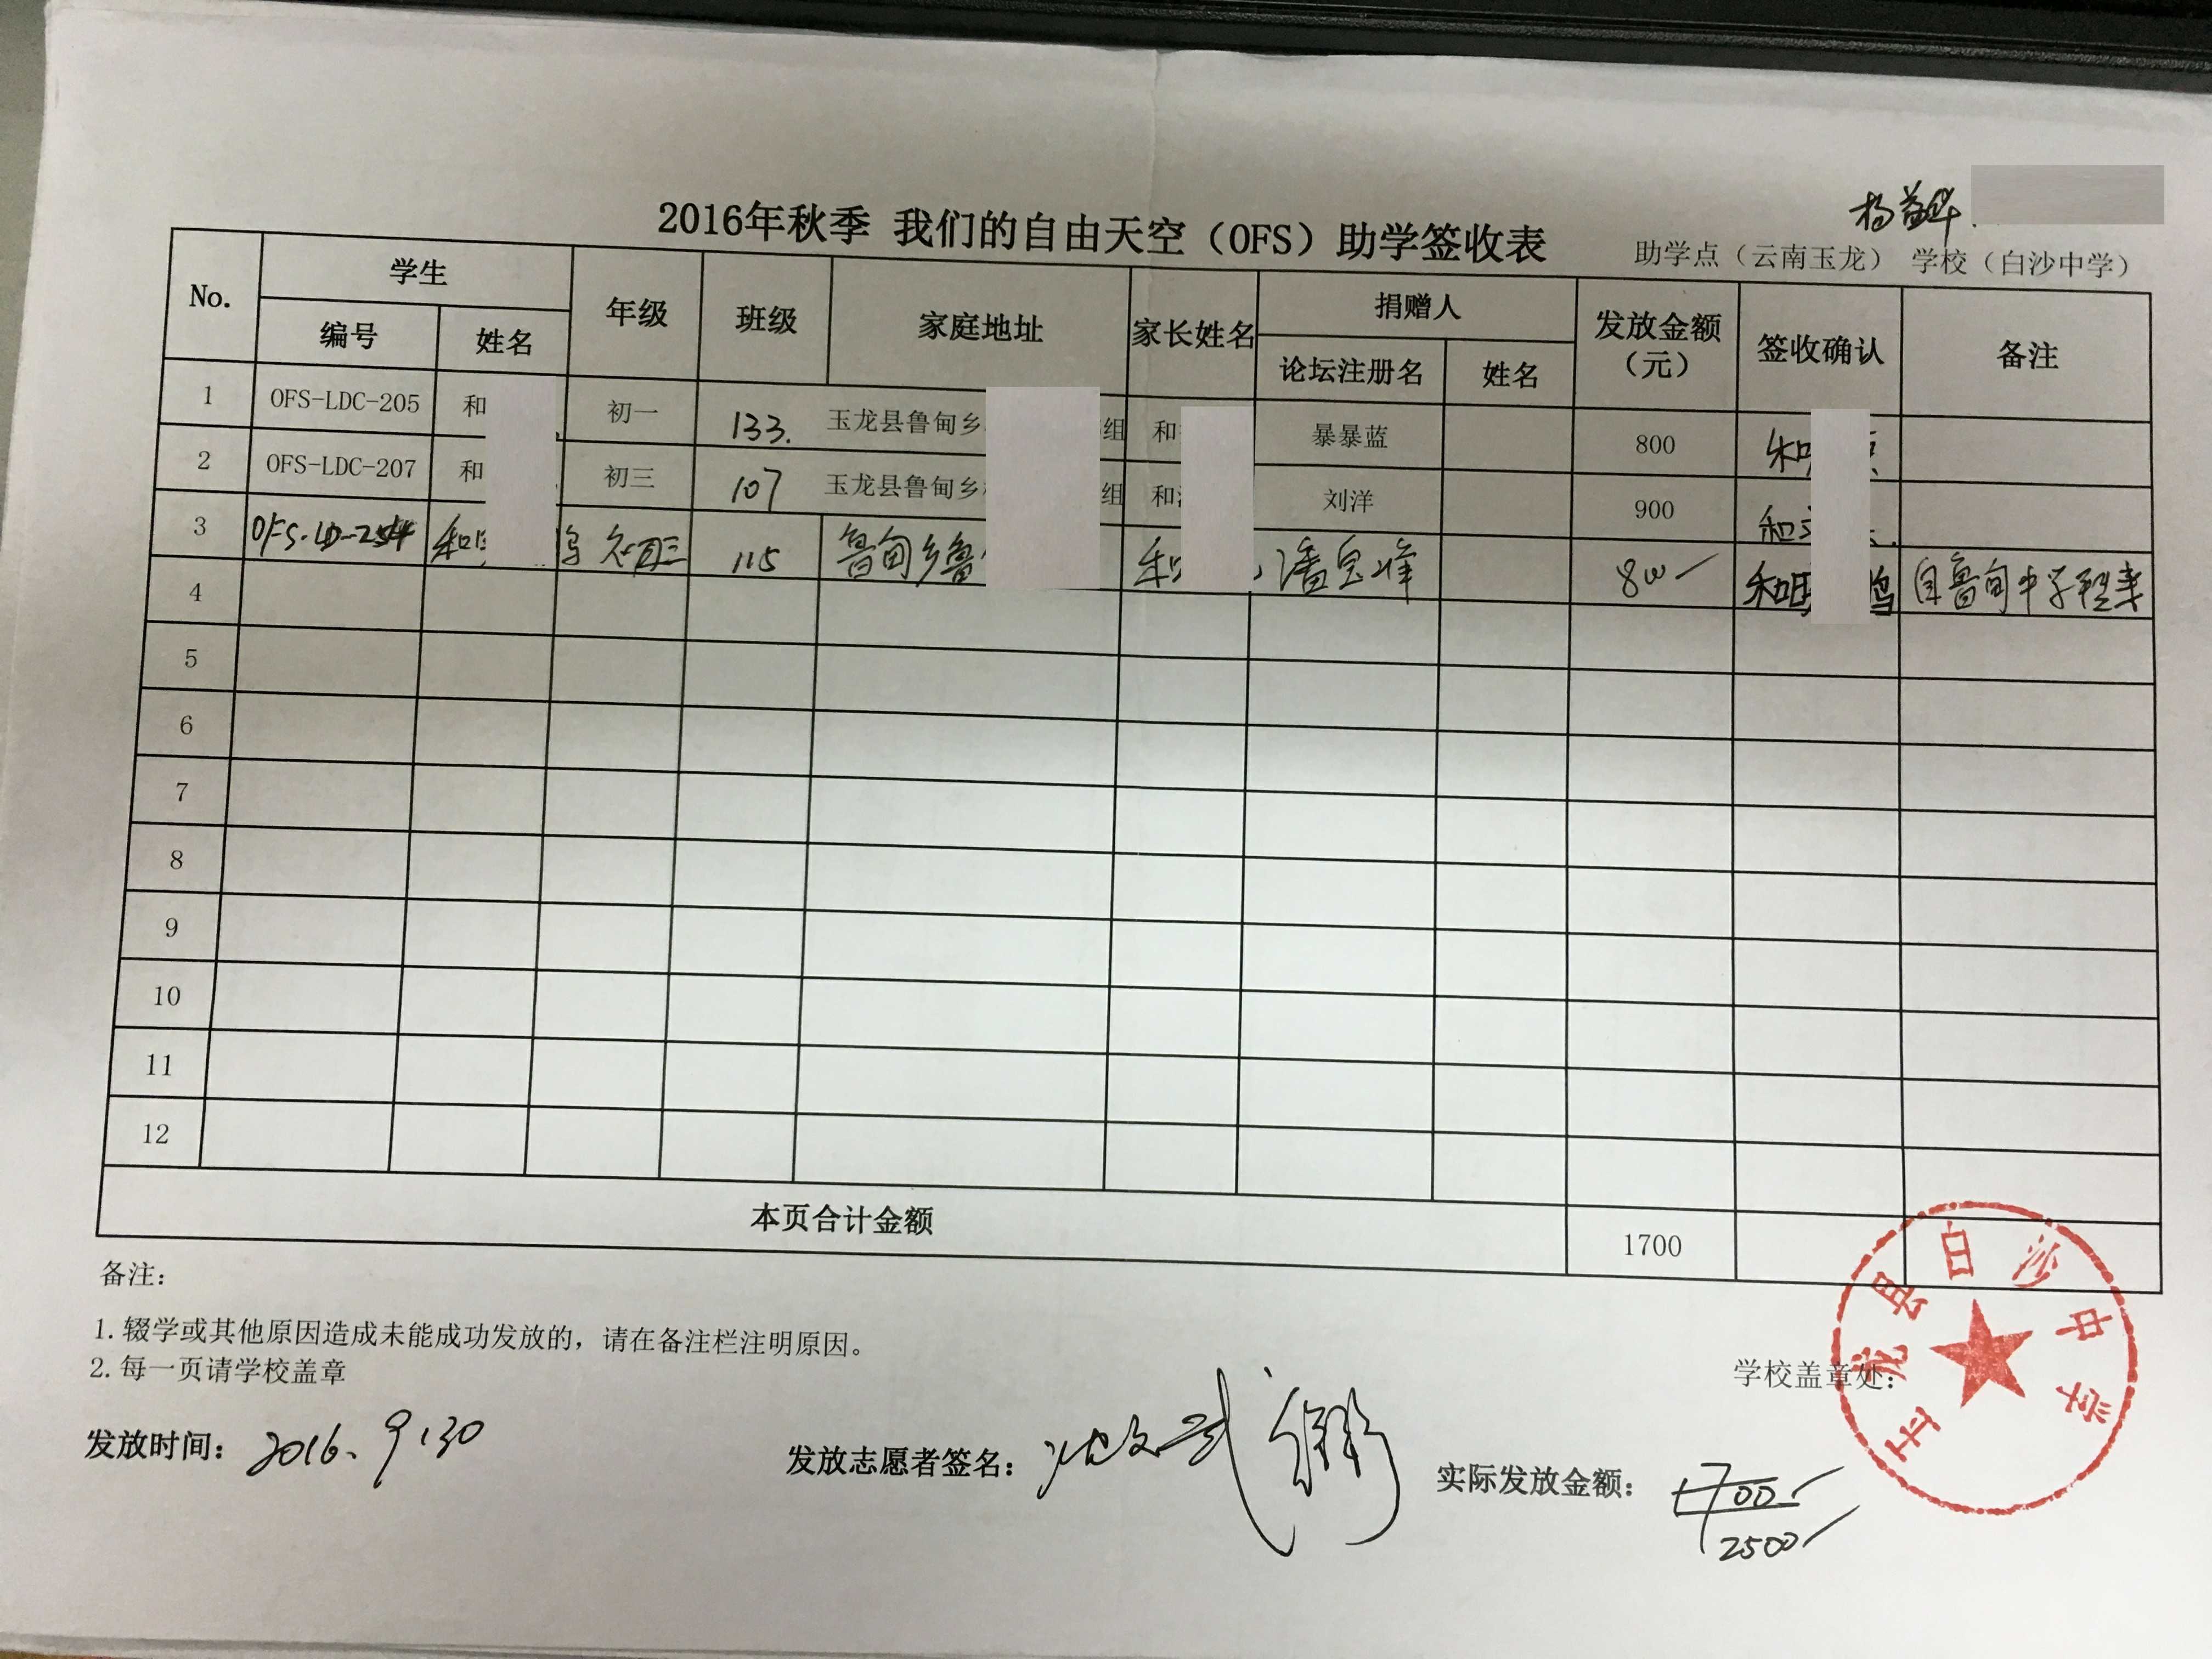 杨益华
2016年秋季 我们的自由天空（OFS）助学签收表
助学点（云南玉龙） 学校（白沙中学）
No. 学生 年级 班级 家庭地址 家长姓名 捐赠人 发放金额（元） 签收确认 备注
编号 姓名 论坛注册名 姓名
1 OFS-LDC-205 和 初一 133. 玉龙县鲁甸乡 组 和 暴暴蓝 800 和
2 OFS-LDC-207 和 初三 107 玉龙县鲁甸乡 组 和 刘洋 900 和
3 OFS-LD-254 和 115 鲁甸乡鲁 和 潘宝峰 800 和 鸿 自鲁甸中学转来
4
5
6
7
8
9
10
11
12
本页合计金额 1700
备注：
1.辍学或其他原因造成未能成功发放的，请在备注栏注明原因。
2.每一页请学校盖章
学校盖章处：
玉龙县白沙中学
发放时间：2016、9.30
发放志愿者签名：
实际发放金额：1700
2500